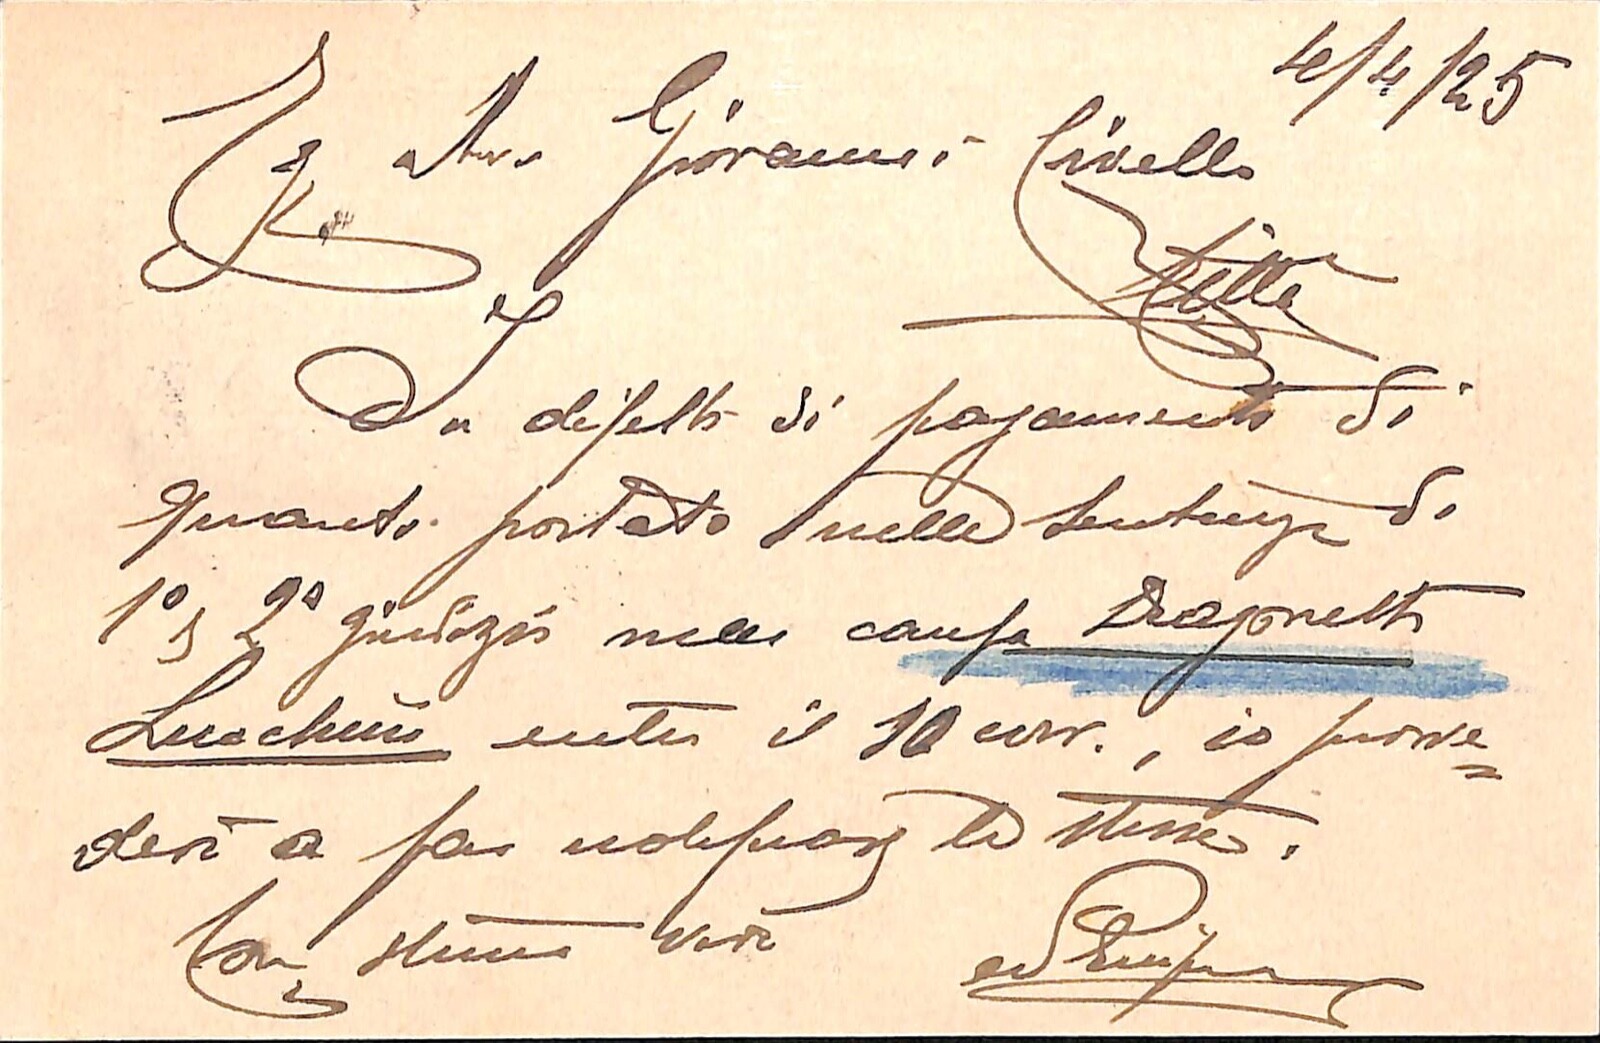 4/4/25
Eg avv. Giovanni Civello
Città
In difetto di pagamento di
quanto portato nelle sentenze di
1° e 2° giudizio nella causa Dragonetti
Lucchini entro il 10 corr., io provve=
derò a far notificare le stesse.
Con stima vera